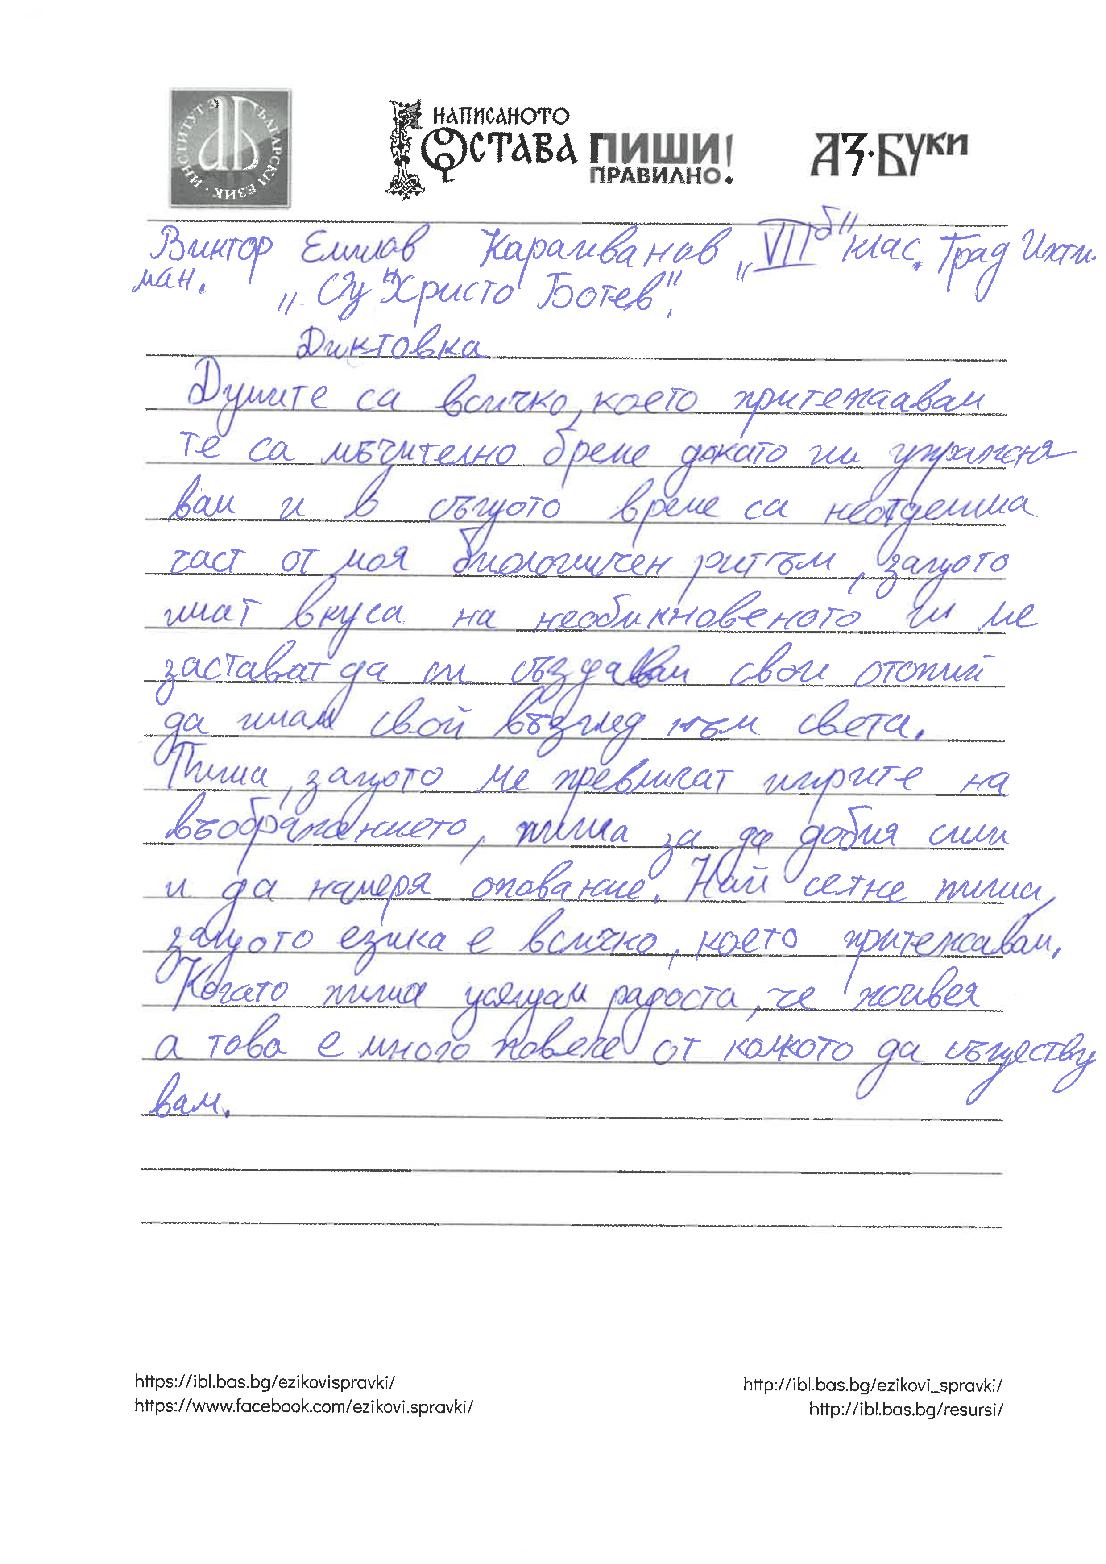 ИНСТИТУТ ЗА БЪЛГАРСКИ ЕЗИК
НАПИСАНОТО
ОСТАВА ПИШИ!
ПРАВИЛНО.
АЗ·БУКИ
Виктор Емилов Карагиванов „VII б" клас. Град Ихти
ман. „СУ "Христо Ботев".
Диктовка
Думите са всичко, което притежаавам
те са мъчително бреме докато ги упражня
вам и в същото време са неотделима
част от моя биологичен ритъм, защото
имат вкуса на необикновеното и ме
заставят да си създавам свои отопий
да имам свой възглед към света.
Пиша, защото ме превличат игрите на
въображението, пиша за да добия сили
и да намеря опование. Най сетне пиша,
защото езика е всичко, което притежавам.
Когато пиша усещам радоста, че живея
а това е много повече от колкото да съществу
вам.
https://ibl.bas.bg/ezikovispravki/
https://www.facebook.com/ezikovi.spravki/
http://ibl.bas.bg/ezikovi_spravki/
http://ibl.bas.bg/resursi/